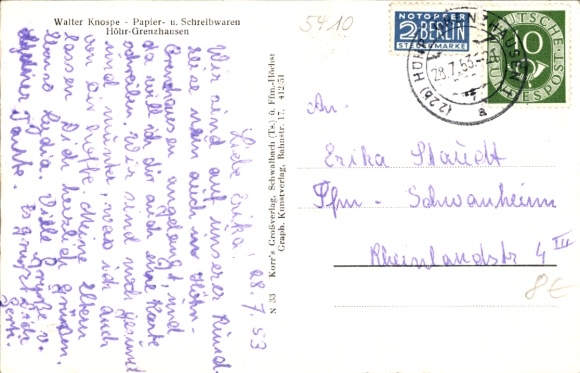 Walter Knospe - Papier- u. Schreibwaren
Höhr-Grenzhausen
5410
NOTOPFER
2 BERLIN
STEUERMARKE
DEUTSCHE
BUNDESPOST
10
28.7.53
(22b) HÖHR-GRENZHAUSEN
a
28.7.53
Liebe Erika!
Wir sind auf unserer Rund
reise nun auch in Höhr-
Grenzhausen angelangt, und
da will ich dir auch eine Karte
schreiben. Wir sind noch gesund
und munter, was ich auch
von Dir hoffe. Meine Eltern
lassen Dich herzlich grüßen.
Viele Grüße v.
Es grüßt Dich
Tante
N 33 Korr's Großverlag, Schwalbach (Ts.) ü. Ffm-Höchst
Graph. Kunstverlag, Bahnstr. 17. 412/51
An.
Erika Staudt
Ffm - Schwanheim
Rheinlandstr 4 III
8€